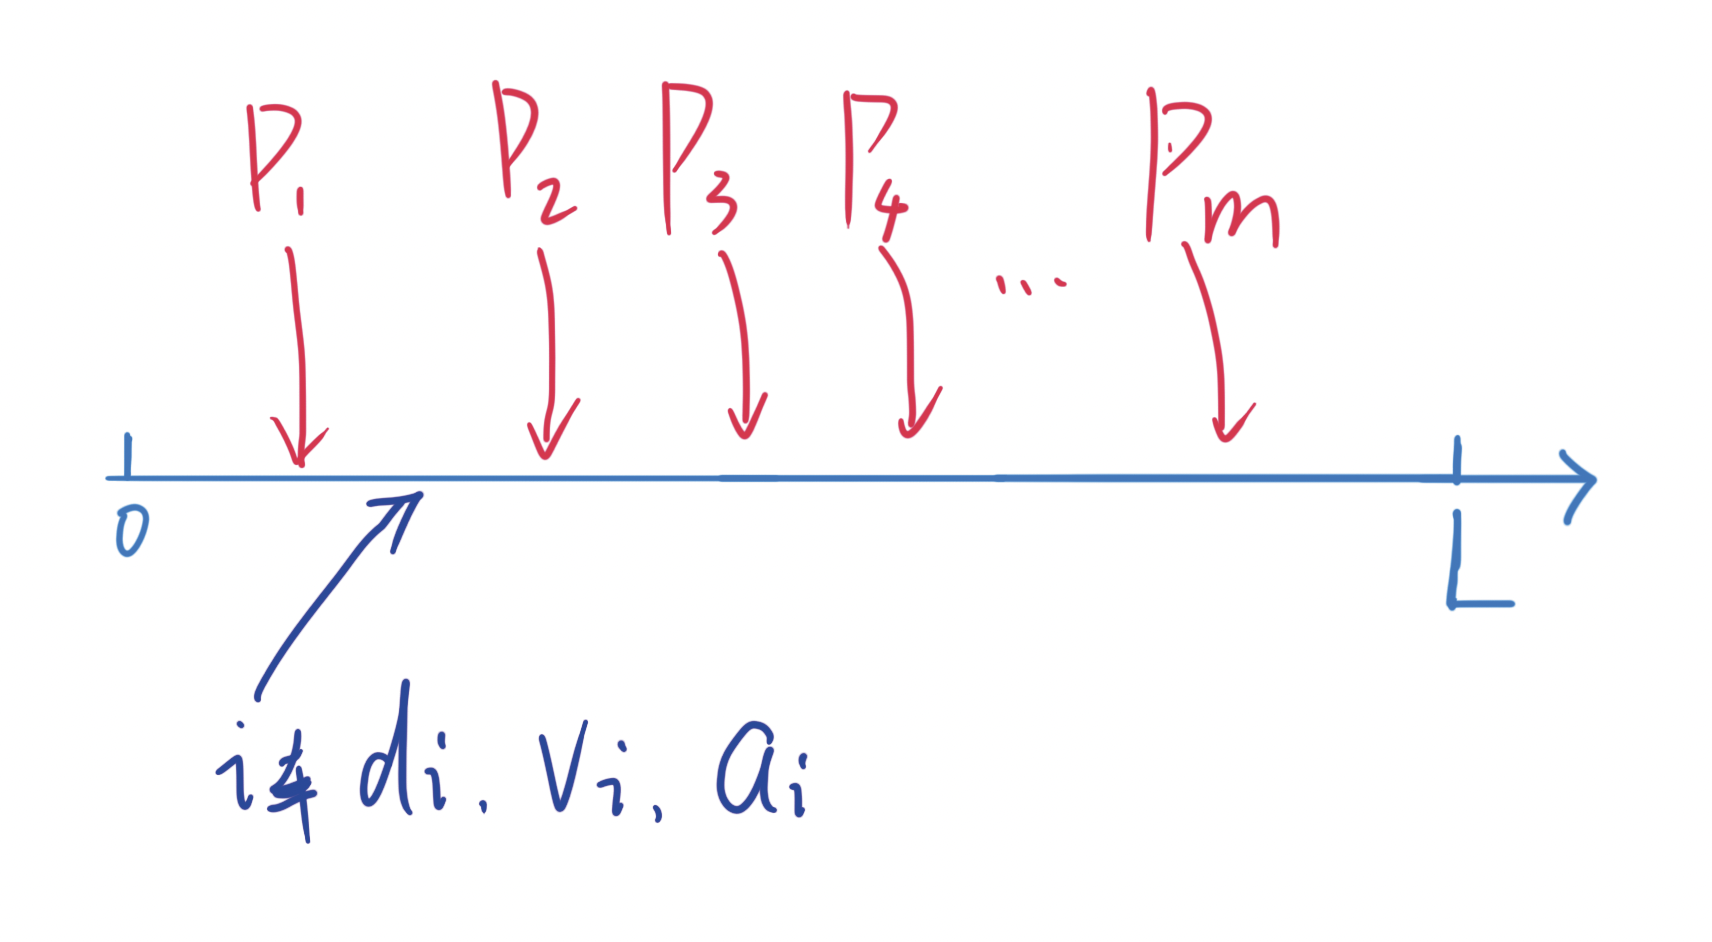 P1 P2 P3 P4 ... Pm
0 L
i车 di, vi, ai